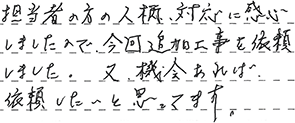 担当者の方の人柄、対応に感心
しましたので、今回追加工事を依頼
しました。又、機会あれば
依頼したいと思ってます。